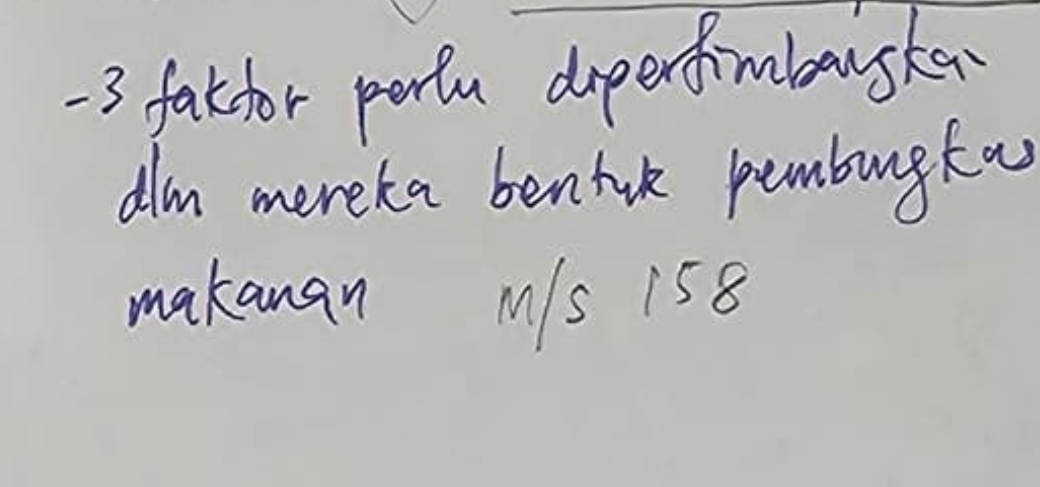 -3 faktor perlu dipertimbangkan
dlm mereka bentuk pembungkas
makanan m/s 158